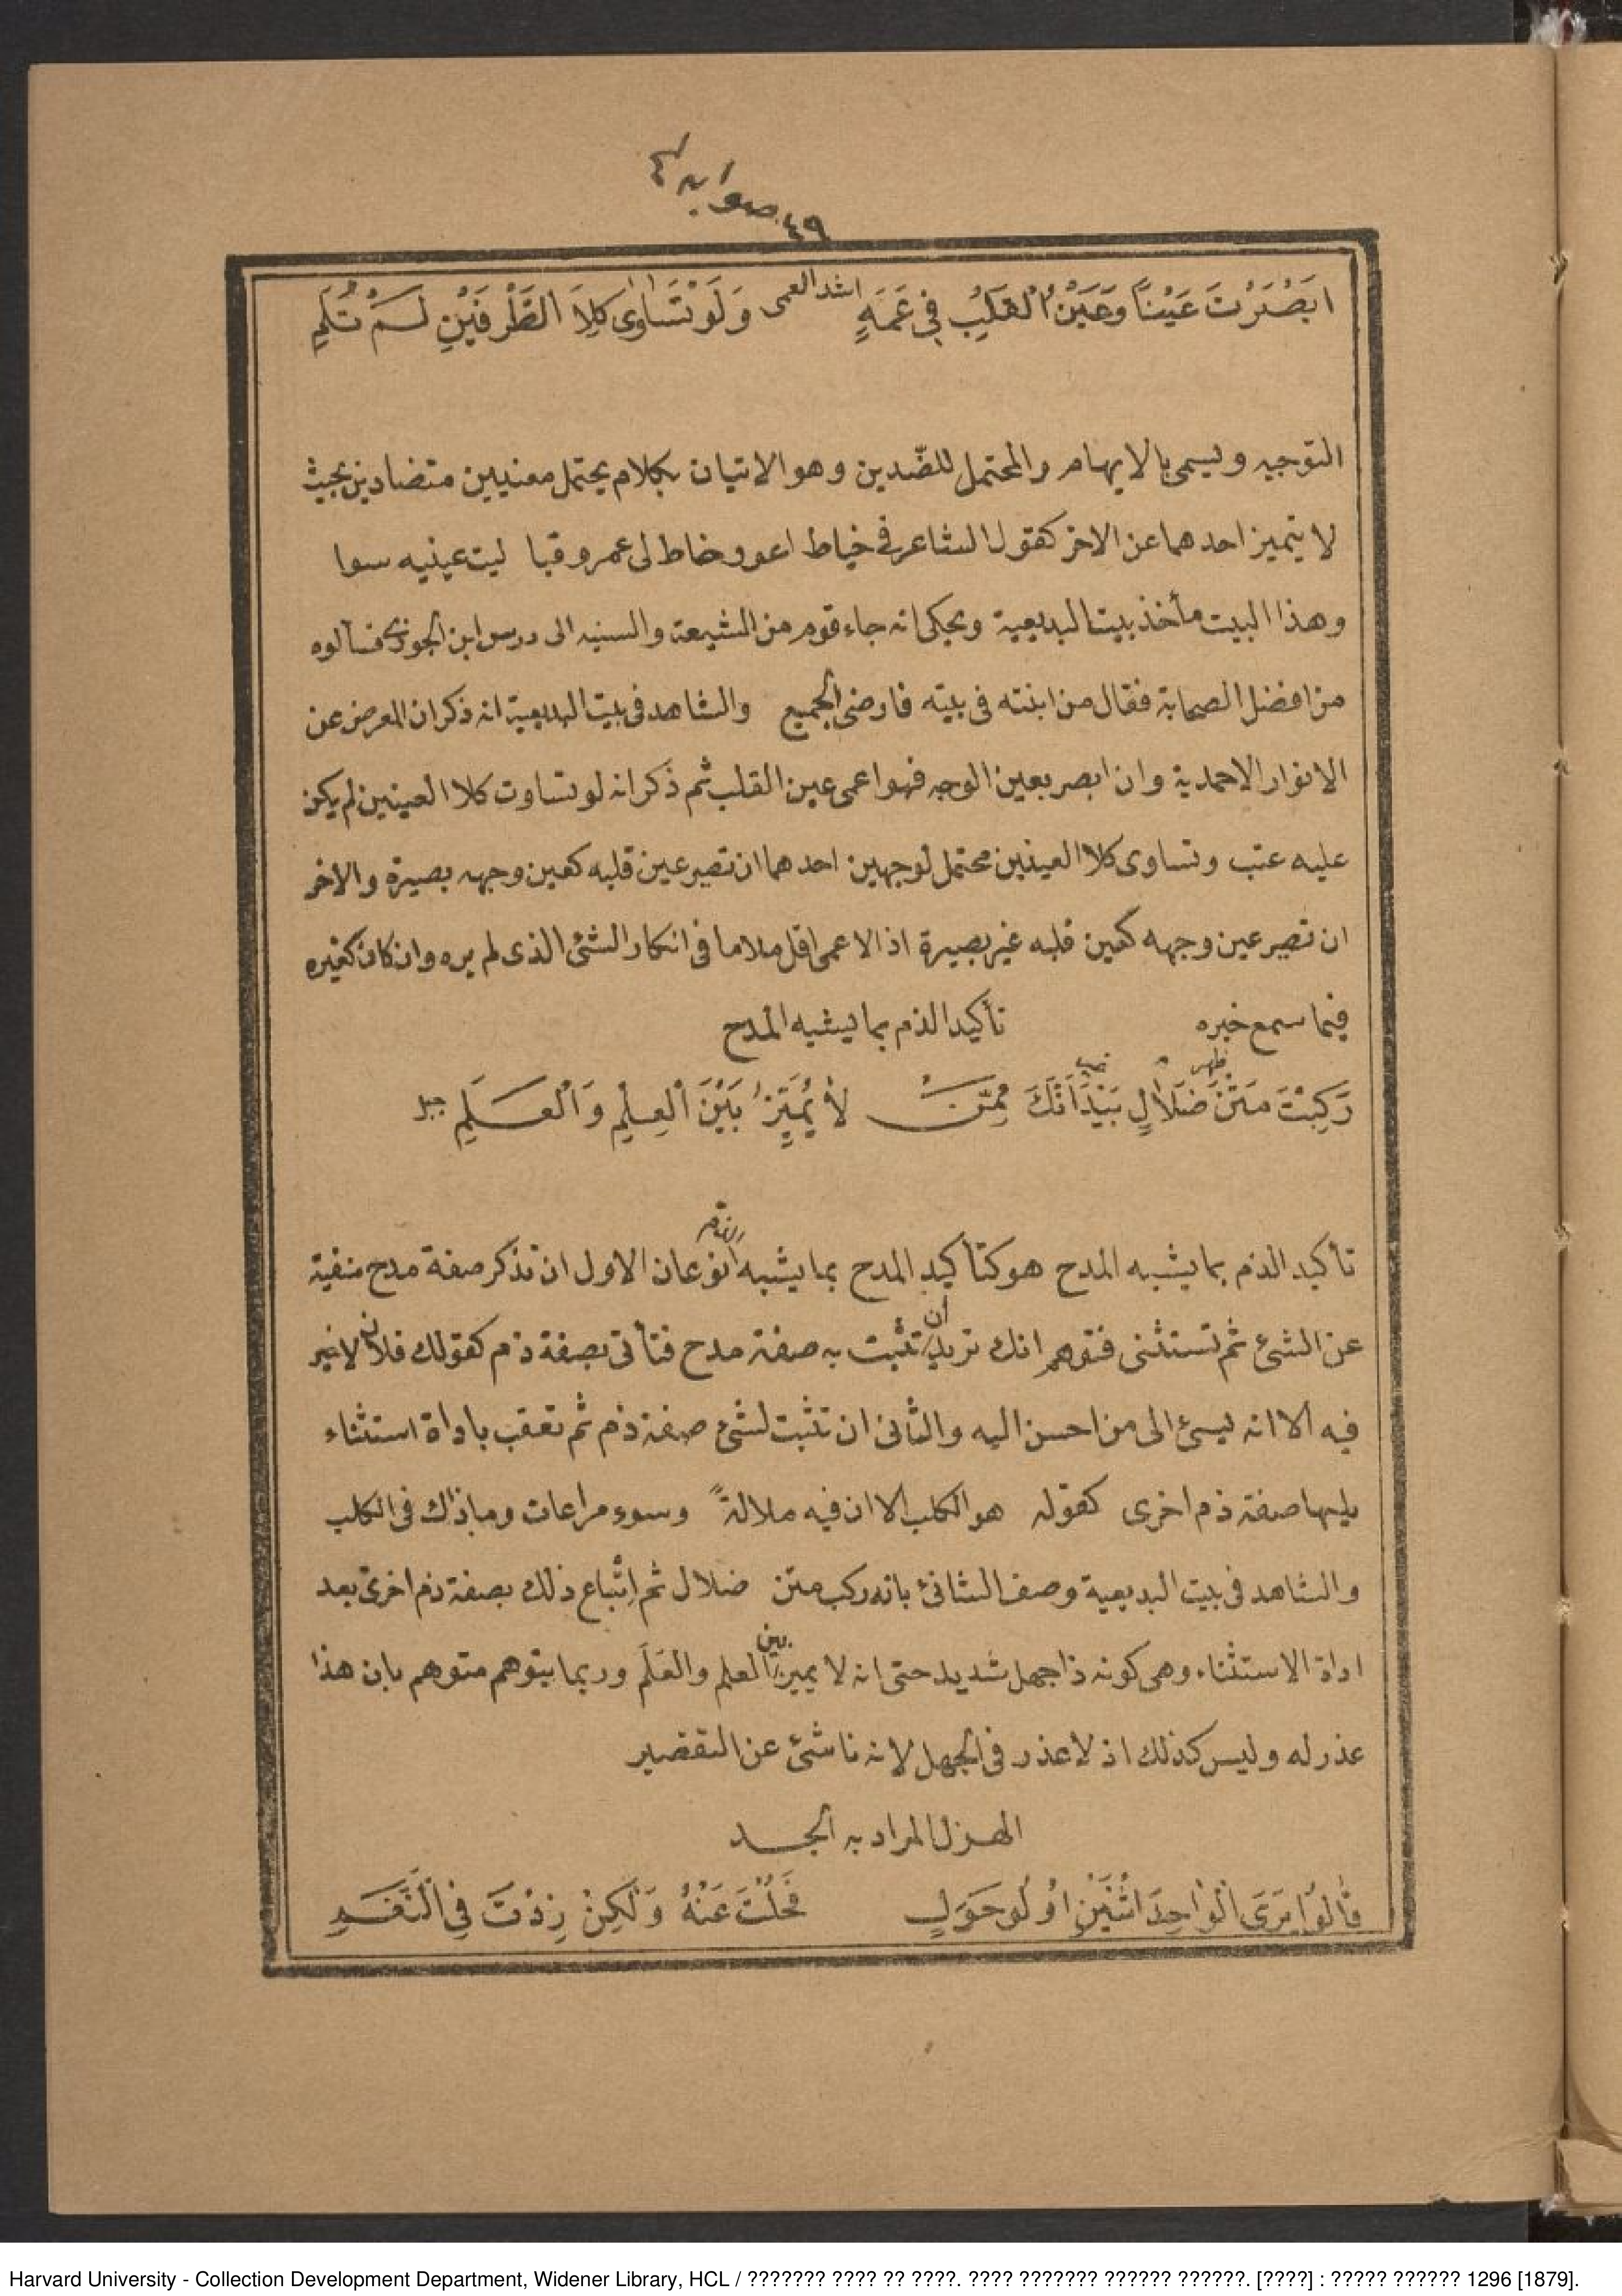 ٤٩ صوابه
ابَصْرَتَ عَيْناً وَعَيْنُ الْقَلْبِ فِى عَمَهٍ وَلَوْ تَسَاوٰى كِلاَ الطَّرْفَيْنِ لَمْ تُلَمِ
اشد العمى
التوجيه ويسمى بالايهام والمحتمل للضّدين وهو الاتيان بكلام يحتمل معنيين متضادين بحيث
لا يتميز احدهما عن الاخر كقول الشاعر فى خياط اعور خاط لى عمرو قبا ليت عينيه سوا
وهذا البيت مأخذ بيت البديعية ويحكى انه جاء قوم من الشيعة والسنيه الى درس ابن الجوزى فسألوه
من افضل الصحابة فقال من ابنته فى بيته فارضى الجميع والشاهد فى بيت البديعية انه ذكر ان المعرض عن
الانوار الاحمدية وان ابصر بعين الوجه فهو اعمى عين القلب ثم ذكر انه لو تساوت كلا العينين لم يكن
عليه عتب وتساوى كلا العينين محتمل لوجهين احدهما ان تصير عين قلبه كعين وجهه بصيرة والاخر
ان تصير عين وجهه كعين قلبه غير بصيرة اذ الاعمى اقل ملاما فى انكار الشئ الذى لم يره وان كان كغيره
فيما سمع خبره تأكيد الذم بما يشبه المدح
رَكِبْتَ مَتْنَ ضَلاٰلٍ بَيْدَ اَنَّكَ مِمَّنْ لاٰ يُمَيِّزُ بَيْنَ الْعِلْمِ وَالْعَلَمِ
ظهر
تأكيد الذم بما يشبه المدح هو كتأكيد المدح بما يشبه نوعان الاول ان تذكر صفة مدح منفية
عن الشئ ثم تستثنى فتوهم انك تريد أن تثبت به صفة مدح فتأتى بصفة ذم كقولك فلان لا خير
فيه الا انه يسئ الى من احسن اليه والثانى ان تثبت لشئ صفة ذم ثم تعقب باداة استثناء
يليها صفة ذم اخرى كقوله هو الكلب الا ان فيه ملالةً وسوء مراعات وما ذاك فى الكلب
والشاهد فى بيت البديعية وصف الشانئ بانه ركب متن ضلال ثم اتْباع ذلك بصفة ذم اخرى بعد
اداة الاستثناء وهى كونه ذا جهل شديد حتى انه لا يميز بين العلم والعَلَم وربما يتوهم متوهم بان هذا
عذر له وليس كذلك اذ لا عذر فى الجهل لانه ناشئ عن التقصير
الهزل المراد به الجد
قٰالُوا يَرَى الْوٰاحِدَ اثْنَيْنِ اوُلُو حَوَلٍ فَحُلْتَ عَنْهُ وَلَكِنْ زِدْتَ فِى الْنَّقَدِ
Harvard University - Collection Development Department, Widener Library, HCL / ??????? ???? ?? ????. ???? ??????? ?????? ??????. [????] : ????? ?????? 1296 [1879].